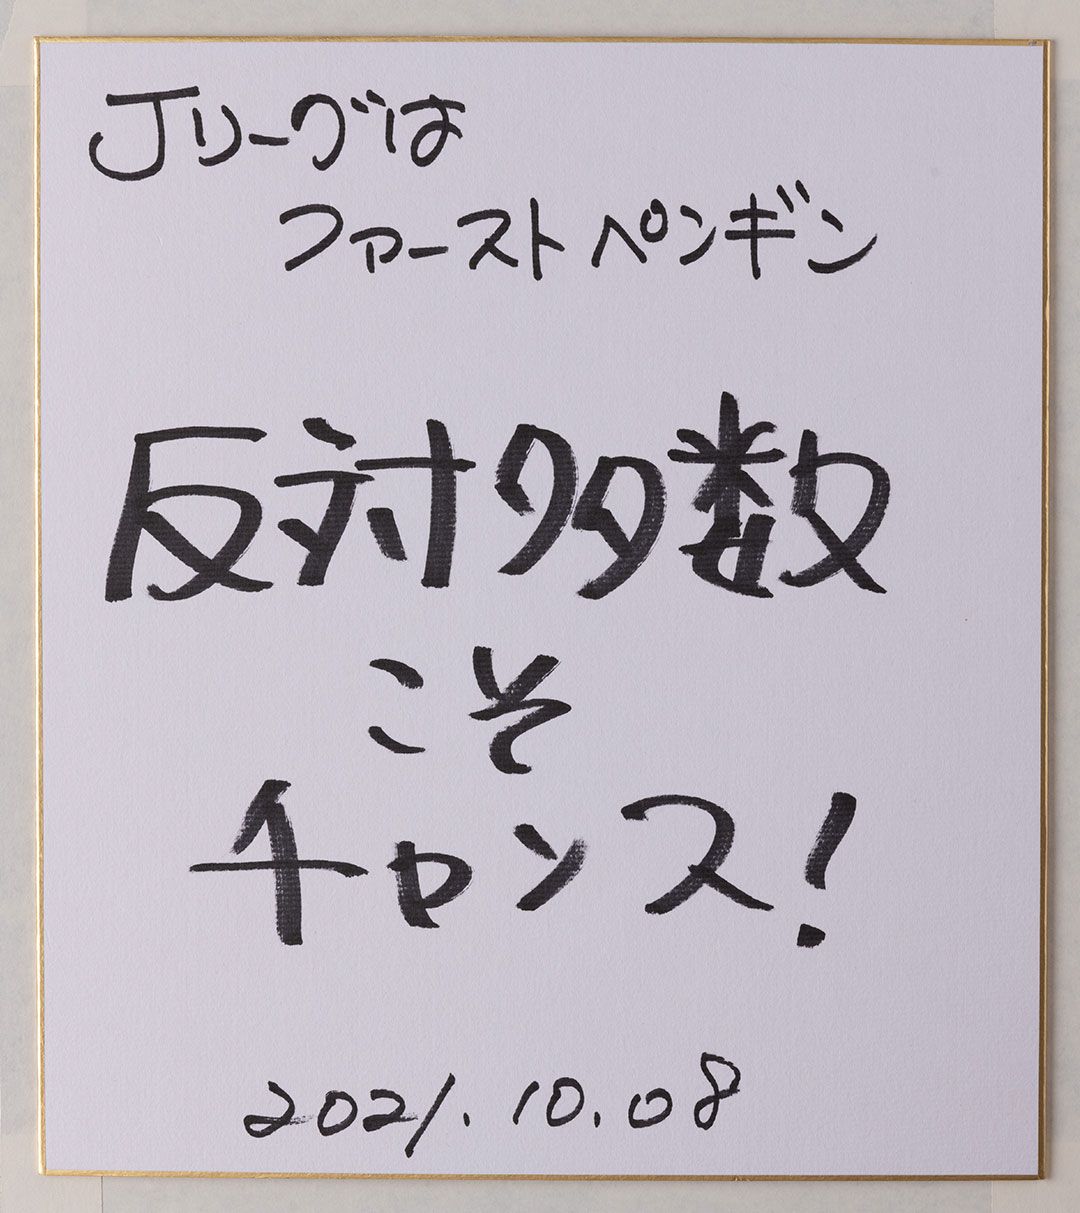 Jリーグは
ファーストペンギン
反対多数
こそ
チャンス!
2021.10.08